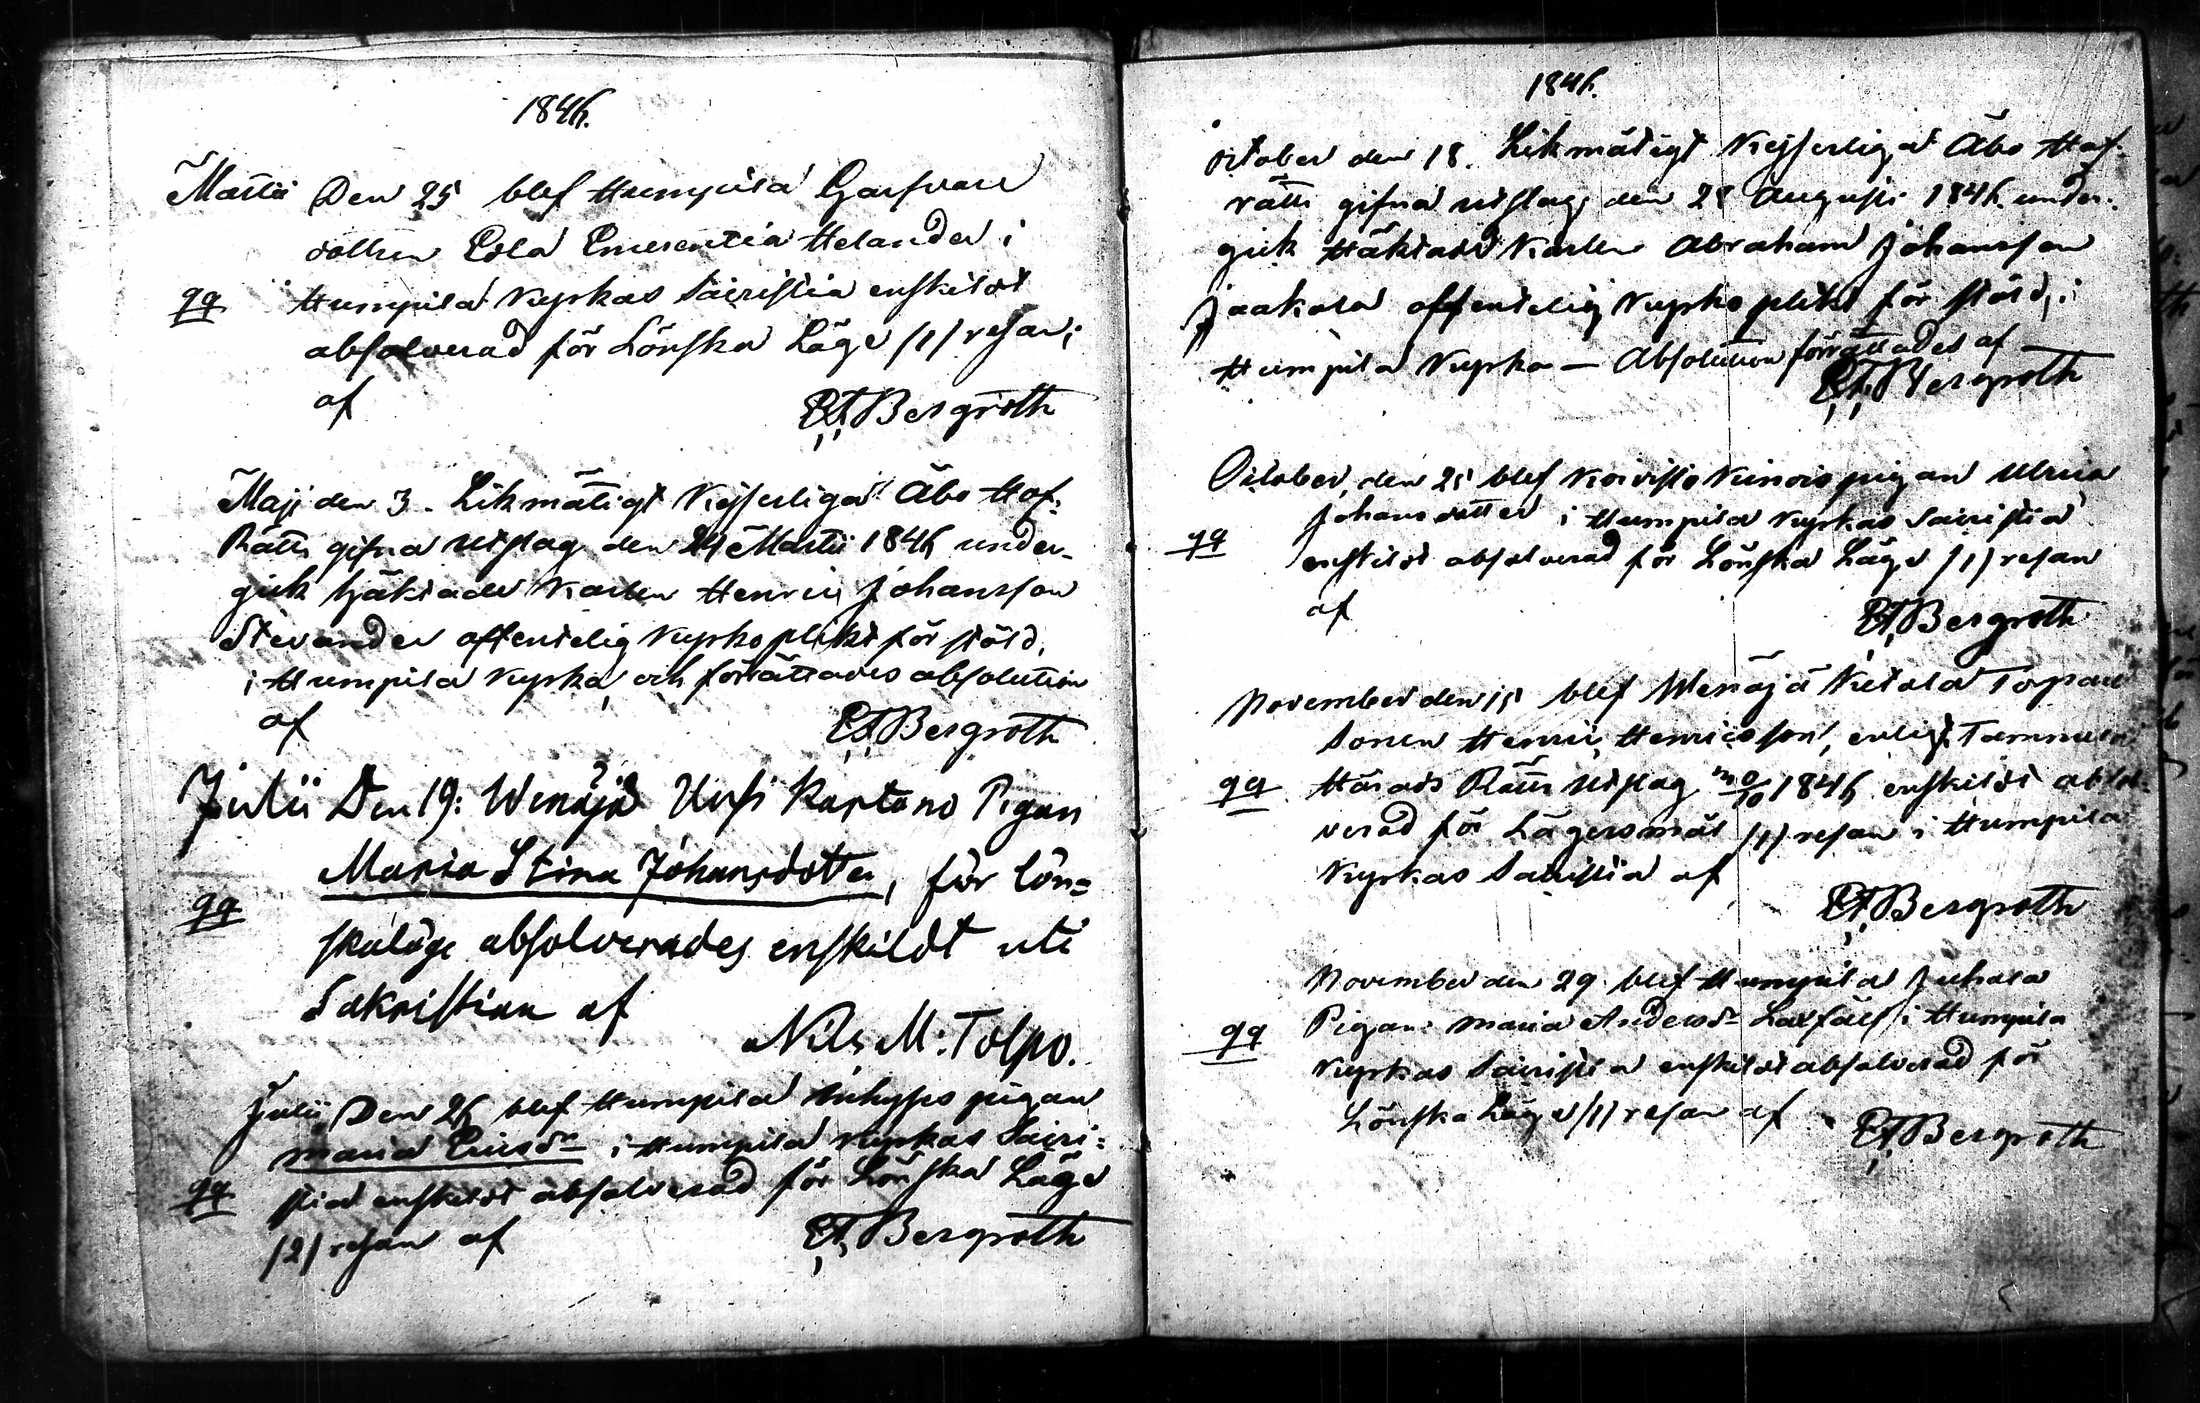 1846.
Martii Den 25 blef Humpila Garfvare
dottren Edla Emerentia Helander i
qq Humpila Kyrkas Sacristia enskildt
absolverad för Lönska Läge /1/ resan;
af
Bergroth
Maji den 3. Likmätigt Kejserliga Åbo Hof-
Rätts gifna utslag den 24 Martii 1846 under-
gick häktade Karlen Henric Johansson
Stevander offentelig Kyrkoplikt för stöld,
i Humpila Kyrka, och förrättades absolution
af
Bergroth
Julii Den 19: Wenäjä Uusi Kartano Pigan
Maria Stina Johansdotter, för lön=
qq
skaläge absolverades enskildt uti
Sakristian af
Nils M: Tolpo.
Julii Den 26 blef Humpila pigan
Maria Ericsdr i Humpila Kyrkas Sacri=
qq stia enskildt absolverad för Lönska Läge
/2/ resan af
Bergroth
1846.
October den 18. Likmätigt Kejserliga Åbo Hof-
rätts gifna utslag den 28 Augusti 1846 under-
gick Häktade Karlen Abraham Johansson
Jaakola offentelig Kyrkoplikt för stöld, i
Humpila Kyrka — Absolution förrättades af
Bergroth
October, den 25 blef Koivisto pigan Ulrica
Johansdotter i Humpila Kyrkas Sacristia
qq enskildt absolverad för Lönska Läge /1/ resan
af
Bergroth
November den 15 blef Wenäjä Ketola Torpare
Sonen Henric Henricsson, enligt Tammela
qq Härads Rätts utslag 1846 enskildt absol-
verad för Lägersmål /1/ resan i Humpila
Kyrkas Sacristia af
Bergroth
November den 29 blef Humpila Juhala
qq Pigan Maria Andersdr i Humpila
Kyrkas Sacristia enskildt absolverad för
Lönska Läge /1/ resan af
Bergroth